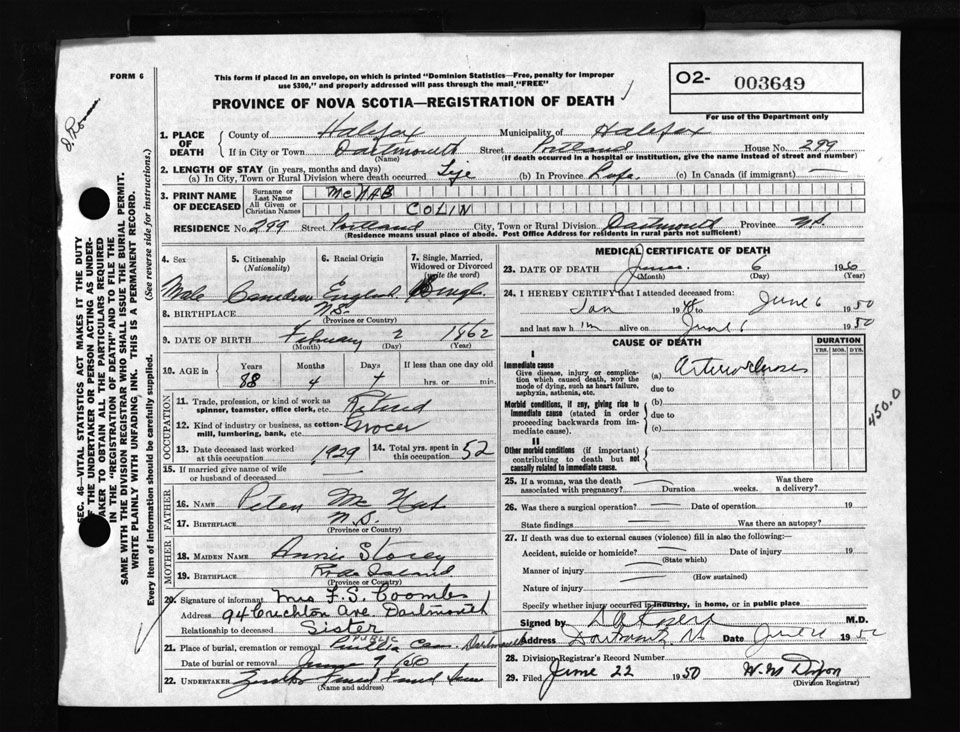 FORM 6
This form if placed in an envelope, on which is printed "Dominion Statistics—Free, penalty for improper
use $300," and properly addressed will pass through the mail, "FREE"
O2- 003649
For use of the Department only
PROVINCE OF NOVA SCOTIA—REGISTRATION OF DEATH
1. PLACE OF DEATH
County of Halifax Municipality of Halifax
If in City or Town Dartmouth Street Portland House No. 299
(Name) (If death occurred in a hospital or institution, give the name instead of street and number)
2. LENGTH OF STAY (in years, months and days)
(a) In City, Town or Rural Division where death occurred Life (b) In Province Life (c) In Canada (if immigrant) —
3. PRINT NAME OF DECEASED
Surname or Last Name McNAB
All Given or Christian Names COLIN
RESIDENCE No. 299 Street Portland City, Town or Rural Division Dartmouth Province N.S.
(Residence means usual place of abode. Post Office Address for residents in rural parts not sufficient)
4. Sex Male
5. Citizenship (Nationality) Canadian
6. Racial Origin English
7. Single, Married, Widowed or Divorced (write the word) Single
8. BIRTHPLACE N.S.
(Province or Country)
9. DATE OF BIRTH February 2 1862
(Month) (Day) (Year)
10. AGE in Years Months Days If less than one day old
88 4 4 hrs. or min.
OCCUPATION
11. Trade, profession, or kind of work as spinner, teamster, office clerk, etc. Retired
12. Kind of industry or business, as cotton-mill, lumbering, bank, etc. Grocer
13. Date deceased last worked at this occupation 1929
14. Total yrs. spent in this occupation 52
15. If married give name of wife or husband of deceased
FATHER
16. NAME Peter McNab
17. BIRTHPLACE N.S.
(Province or Country)
MOTHER
18. MAIDEN NAME Annie Storey
19. BIRTHPLACE Island
(Province or Country)
20. Signature of informant Mrs F. S. Coombs
Address 94 Crichton Ave. Dartmouth
Relationship to deceased Sister
21. Place of burial, cremation or removal PUBLIC Cem. Dartmouth
Date of burial or removal June 9/50
22. UNDERTAKER
(Name and address)
MEDICAL CERTIFICATE OF DEATH
23. DATE OF DEATH June 6
(Month) (Day)
24. I HEREBY CERTIFY that I attended deceased from:
Jan 1948 to June 6 1950
and last saw him alive on June 6 1950
CAUSE OF DEATH
DURATION
YRS. MOS. DYS.
I
Immediate cause
Give disease, injury or complication which caused death, NOT the mode of dying, such as heart failure, asphyxia, asthenia, etc.
(a) Arteriosclerosis
due to
Morbid conditions, if any, giving rise to immediate cause (stated in order proceeding backwards from immediate cause).
(b)
due to
(c)
II
Other morbid conditions (if important) contributing to death but not causally related to immediate cause.
450.0
25. If a woman, was the death associated with pregnancy? Duration weeks. Was there a delivery?
26. Was there a surgical operation? Date of operation 19
State findings Was there an autopsy?
27. If death was due to external causes (violence) fill in also the following:
Accident, suicide or homicide? Date of injury 19
(State which)
Manner of injury
(How sustained)
Nature of injury
Specify whether injury occurred in industry, in home, or in public place
Signed by M.D.
Address Dartmouth NS Date June 19
28. Division Registrar's Record Number
29. Filed June 22 1950 W.M. Dixon
(Division Registrar)
SEC. 46—VITAL STATISTICS ACT MAKES IT THE DUTY
OF THE UNDERTAKER OR PERSON ACTING AS UNDER-
TAKER TO OBTAIN ALL THE PARTICULARS REQUIRED
IN THE "REGISTRATION OF DEATH" AND TO FILE THE
SAME WITH THE DIVISION REGISTRAR WHO SHALL ISSUE THE BURIAL PERMIT.
WRITE PLAINLY WITH UNFADING INK. THIS IS A PERMANENT RECORD.
Every item of information should be carefully supplied. (See reverse side for instructions.)